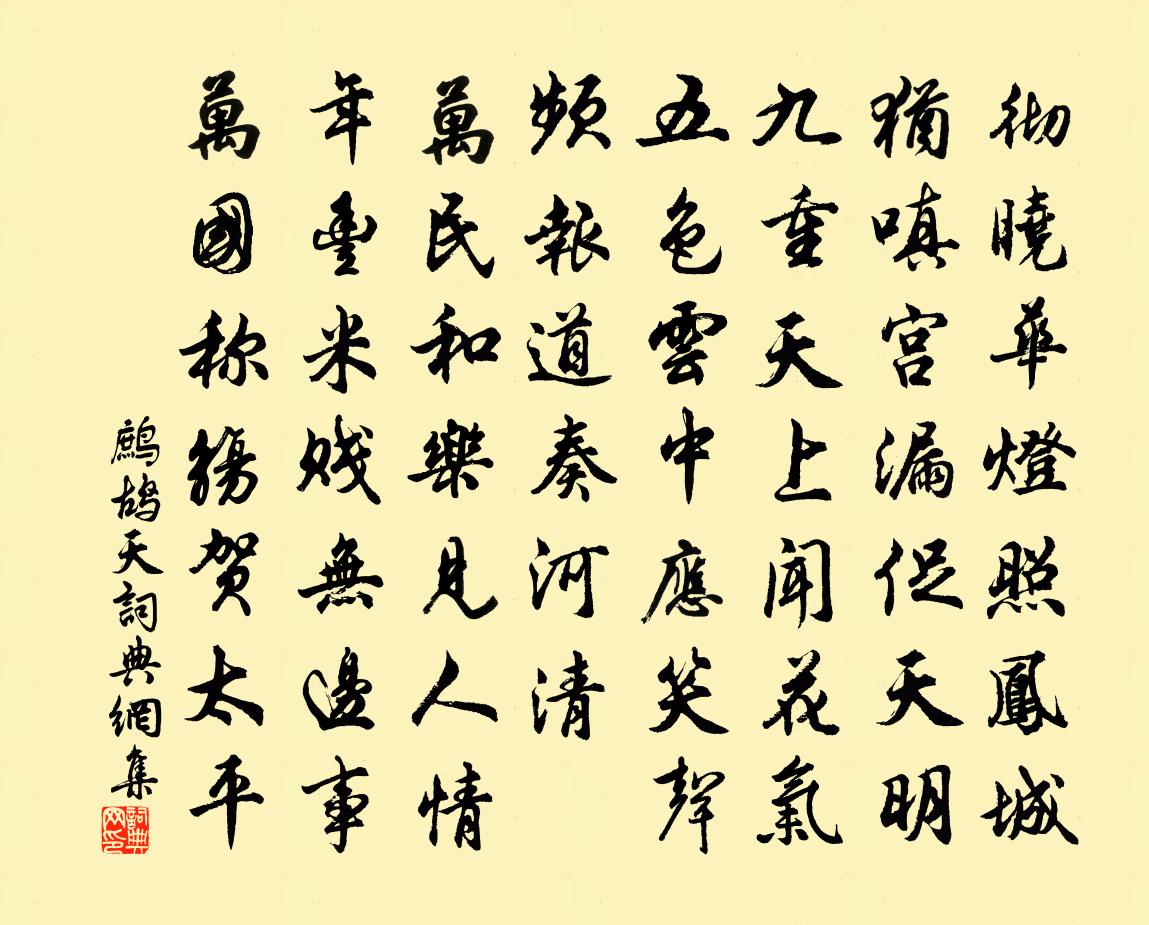 彻曉華燈照鳳城
猶嗔宫漏促天明
九重天上闻花氣
五色雲中應笑聲
頻報道奏河清
萬民和樂見人情
年豐米贱無邊事
萬國称觴贺太平
鷓鴣天詞典網集
詞典网印